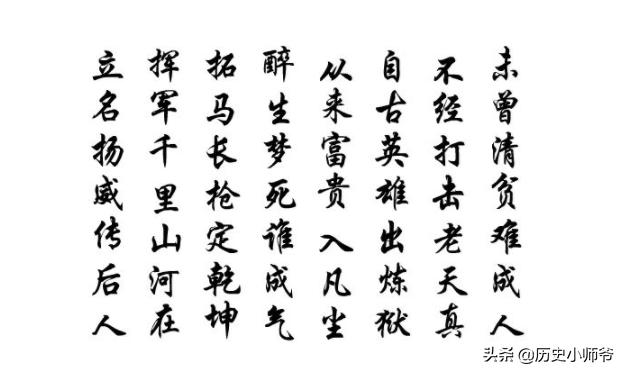 未曾清贫难成人
不经打击老天真
自古英雄出炼狱
从来富贵入凡尘
醉生梦死谁成气
拓马长枪定乾坤
挥军千里山河在
立名扬威传后人
头条 @历史小师爷